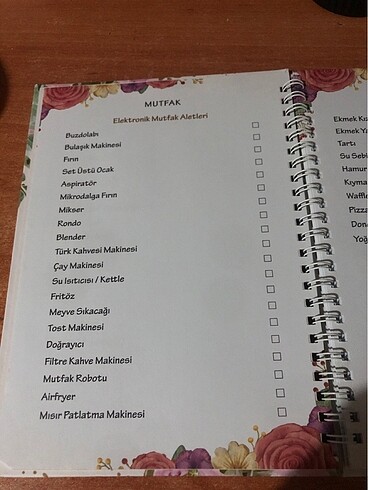 MUTFAK
Elektronik Mutfak Aletleri
Buzdolabı
Bulaşık Makinesi
Fırın
Set Üstü Ocak
Aspiratör
Mikrodalga Fırın
Mikser
Rondo
Blender
Türk Kahvesi Makinesi
Çay Makinesi
Su Isıtıcısı / Kettle
Fritöz
Meyve Sıkacağı
Tost Makinesi
Doğrayıcı
Filtre Kahve Makinesi
Mutfak Robotu
Airfryer
Mısır Patlatma Makinesi
Ekmek
Ekmek
Tartı
Su
Hamur
Kıyma
Pizza